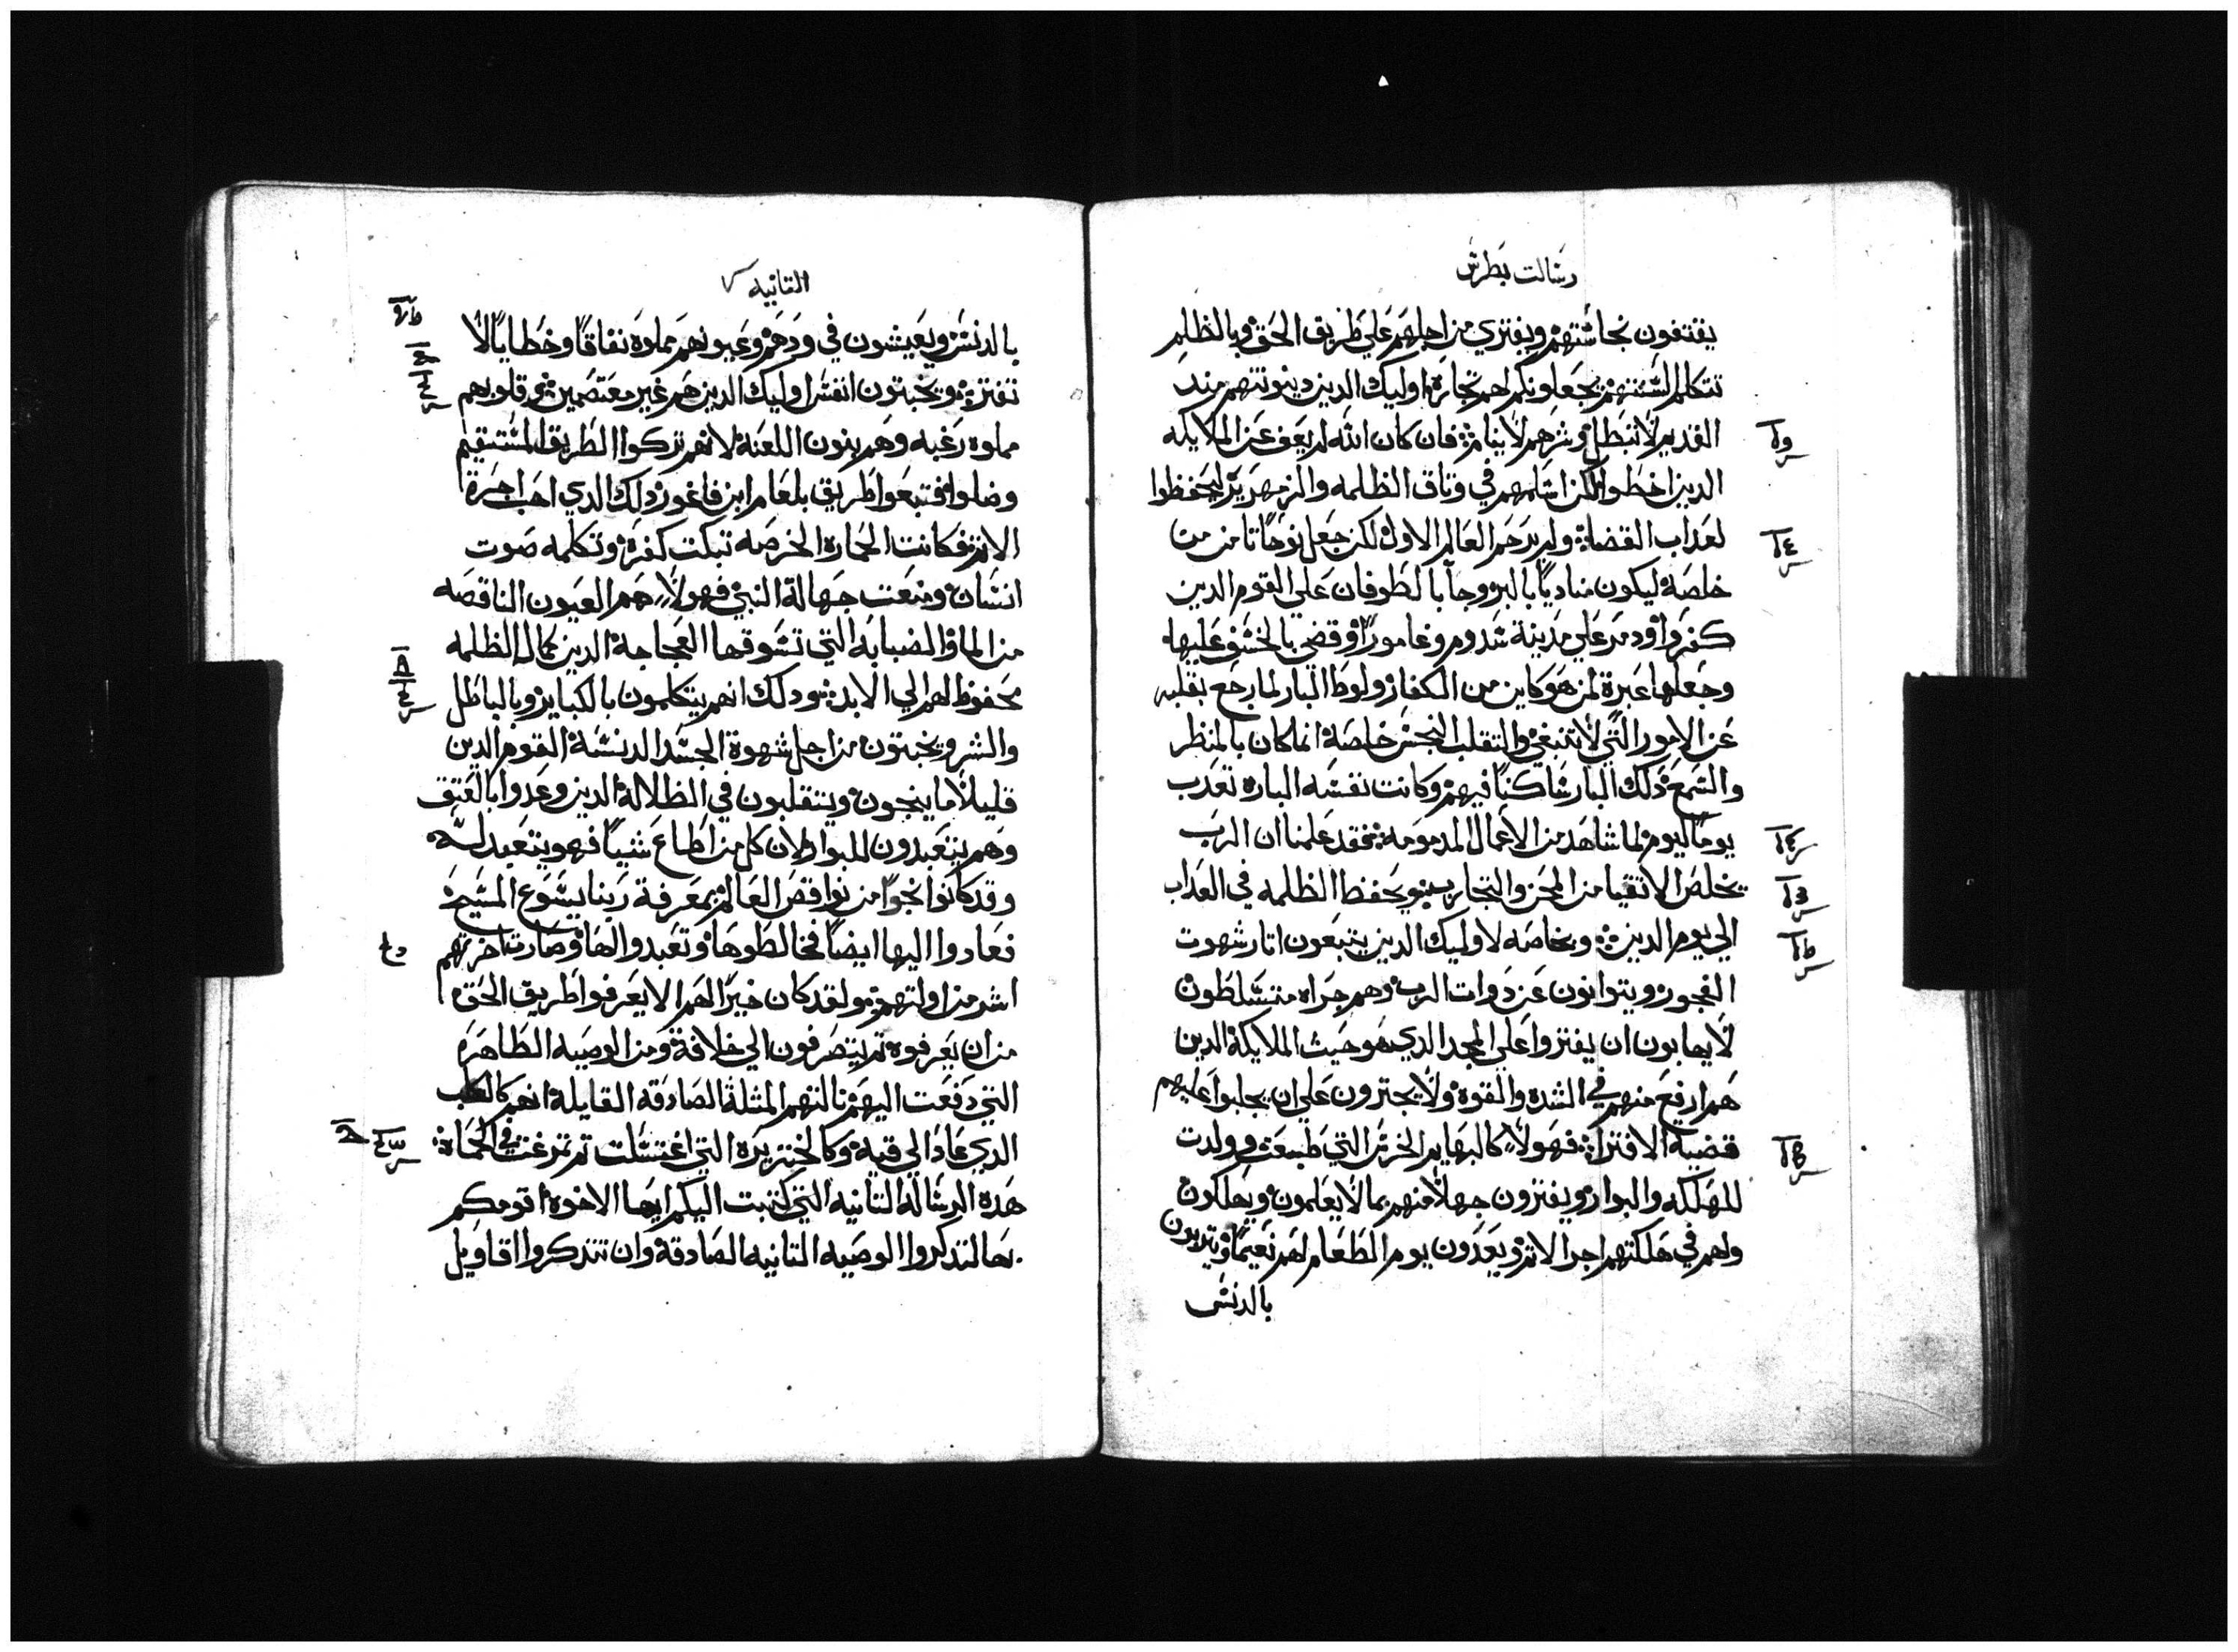 رسالت بطرس
يقتفون نجاستهم ويفتري من اجلهم علي طريق الحق وبالظلم
تتكلم السنتهم يجعلونكم لهم تجارة اوليك الدين دينونتهم مند
القديم لا تبطل وشرهم لا ينام فان كان الله لم يعف عن الملايكه
الدين اخطوا لكن اسلمهم في وتاق الظلمه والزمهرير ليحفظوا
لعداب القضاة ولم يرحم العالم الاول لكن جعل نوحًا تامن من
خلصه ليكون مناديًا بالبر وجا بالطوفان علي القوم الدين
كفروا ودمر علي مدينة سدوم وغامورا وقضي بالخسف عليها
وجعلها عبرة لمن هو كاين من الكفار ولوط البار لما رجع بقلبه
عن الامور التي لا تنبغي والتقلب النجس خلصه انما كان بالمنظر
والسمع دلك البار ساكنًا فيهم وكانت نفسه الباره تعدب
يومًا ليوم لما شاهد من الاعمال المدمومه فقد علمنا ان الرب
يخلص الاتقيا من المحن والتجارب ويحفظ الظلمه في العداب
الي يوم الدين وبخاصه لاوليك الدين يتبعون اتار شهوت
الفجور ويتوانون عن دوات الرب وهم جراه متسلطون
لا يهابون ان يفتروا علي المجد الدي هو حيث الملايكة الدين
هم ارفع منهم في الشده والقوة ولا يجترون علي ان يجلبوا عليهم
قضية الافترا فهولا كالبهايم الخرس التي طبيعت وولدت
للهلكه والبوار ويفترون جهلا منهم بما لا يعلمون ويهلكون
ولهم في هلكتهم اجر الاتم ويعدون يوم الطعام لهم نعيمًا ويتربون
بالدنس
التانيه
بالدنس ويعيشون في ودهم وعيونهم مملوة نفاقًا وخطايا لا
تفتر ويخبتون انفس اوليك الدين هم غير معتصمين وقلوبهم
مملوه رغبه وهم بنون اللعنة لانهم تركوا الطريق المستقيم
وضلوا فتبعوا طريق بلعام ابن فاغور دلك الدي احب اجرة
الاتم فكانت الحمارة الخرصه تبكت كفره وتكلمه صوت
انسان ومنعت جهالة النبي فهولا هم العيون الناقصه
من الما والضبابة التي تسوقها العجاجة الدين كمال الظلمه
محفوظ لهم الي الابد ودلك انهم يتكلمون بالكباير وبالباطل
والشر ويخبتون من اجل شهوة الجسد الدنسة القوم الدين
قليلا ما ينجون ويتقلبون في الظلالة الدين وعدوا بالعتق
وهم يتعبدون للبوار لان كل من اطاع شيا فهو يتعبد له
وقد كانوا نجوا من نواقص العالم بمعرفة ربنا يسوع المسيح
فعادوا اليها ايضًا فخالطوها وتعبدوا لها وصارت اخرتهم
اشد من اولتهم ولقد كان خيرًا لهم الا يعرفوا طريق الحق
من ان يعرفوه تم يتصرفون الي خلافة ومن الوصيه الطاهره
التي دفعت اليهم نالتهم المتلة الصادقه القايلة انهم كالكلب
الدي عاد الي قيه وكالخنزيرة التي اغتسلت تم تمرغت في الحماة
هده الرسالة التانيه التي كتبت اليكم ايها الاخوة اقومكم
بها لتدكروا الوصيه التانيه الصادقة وان تتدكروا اقاويل